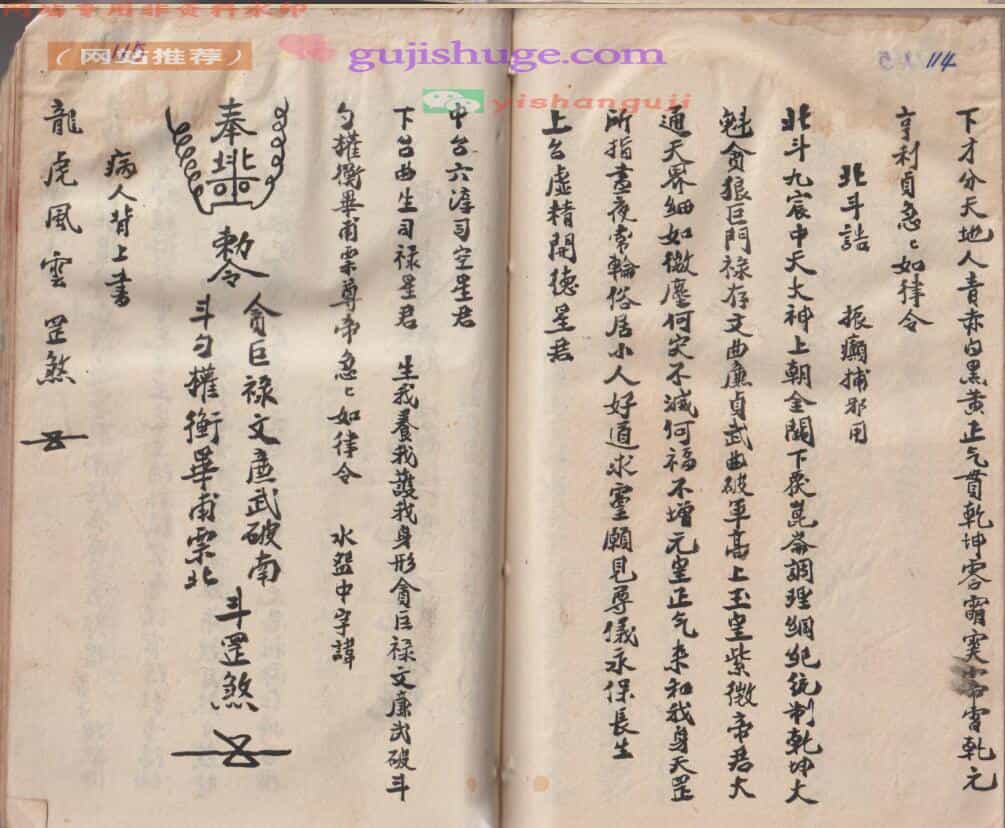 网站专用非资料水印
（网站推荐）
gujishuge.com
yishanguji
115
114
下才分天地人青赤白黑黄正气貫乾坤雷乾元
亨利貞急〻如律令
北斗誥 振癲捕邪用
北斗九宸中天大神上朝金闕下覆崑崙調理綱紀统制乾坤大
魁貪狼巨門禄存文曲廉貞武曲破軍高上玉皇紫微帝君大
通天界細如微塵何灾不滅何福不增元皇正气来和我身天罡
所指晝夜常輪俗居小人好道求靈願見尊儀永保長生
上台虛精開德星君
中台六淳司空星君
下台曲生司禄星君 生我養我護我身形貪巨禄文廉武破斗
勺權衡畢甫票尊帝急〻如律令 水盆中字諱
奉 勅令
貪巨禄文廉武破南
斗勺權衡畢甫票北
斗罡煞
病人背上書
龍虎風雲罡煞